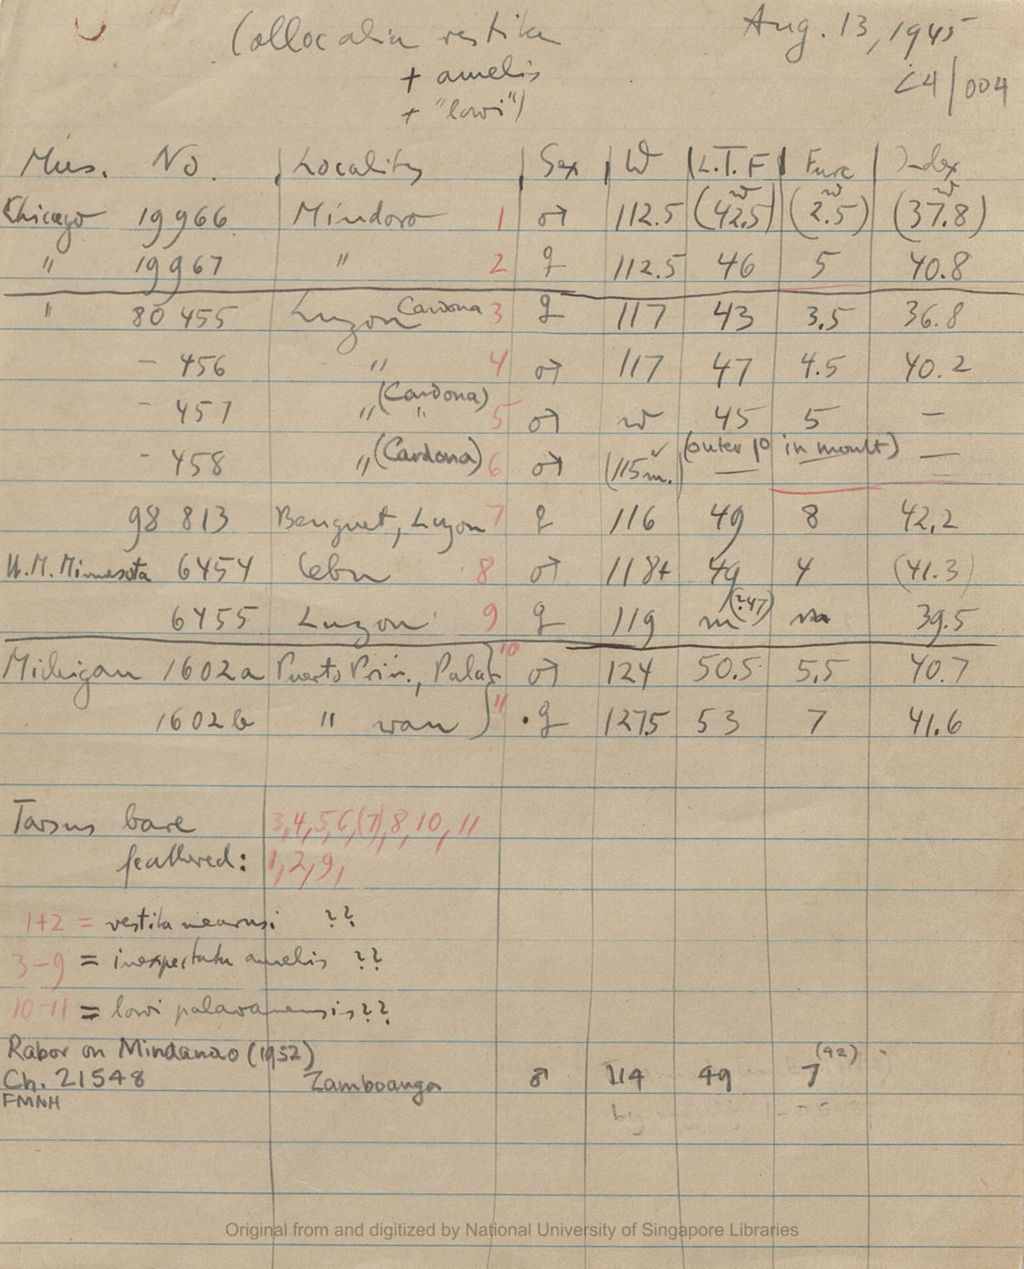 Collocalia vestita Aug. 13, 1945
+ amelis C4/004
+ "lowi")
Mus. No. Locality Sex W L.T.F Furc Index
Chicago 19966 Mindoro 1 ♂ 112.5 (42.5) (2.5) (37.8)
" 19967 " 2 ♀ 112.5 46 5 40.8
" 80 455 Luzon Cardona 3 ♀ 117 43 3.5 36.8
– 456 " 4 ♂ 117 47 4.5 40.2
– 457 " (Cardona) " 5 ♂ w 45 5 –
– 458 " (Cardona) 6 ♂ (115m.) (outer 10 in moult) — —
98 813 Benguet, Luzon 7 ♀ 116 49 8 42,2
U.M. Minnesota 6454 Cebu 8 ♂ 118+ 49 4 (41.3)
6455 Luzon 9 ♀ 119 m (?47) m 39.5
Michigan 1602a Puerto Prin., Pala- 10 ♂ 124 50.5 5,5 40.7
1602b " wan 11 ♀ 127.5 53 7 41.6
Tarsus bare 3,4,5,6,(7),8,10,11
feathered: 1,2,9,
1+2 = vestita mearnsi ??
3–9 = inexpectata amelis ??
10–11 = lowi palawanensis ??
Rabor on Mindanao (1952)
Ch. 21548 Zamboanga ♂ 114 49 7 (92)
FMNH
Original from and digitized by National University of Singapore Libraries